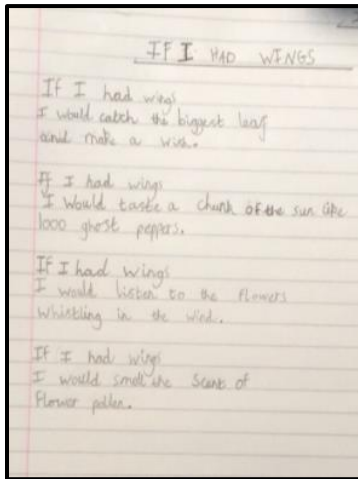 IF I HAD WINGS
If I had wings
I would catch the biggest leaf
and make a wish.
If I had wings
I would taste a chunk of the sun like
1000 ghost peppers.
If I had wings
I would listen to the flowers
whistling in the wind.
If I had wings
I would smell the scent of
flower pollen.